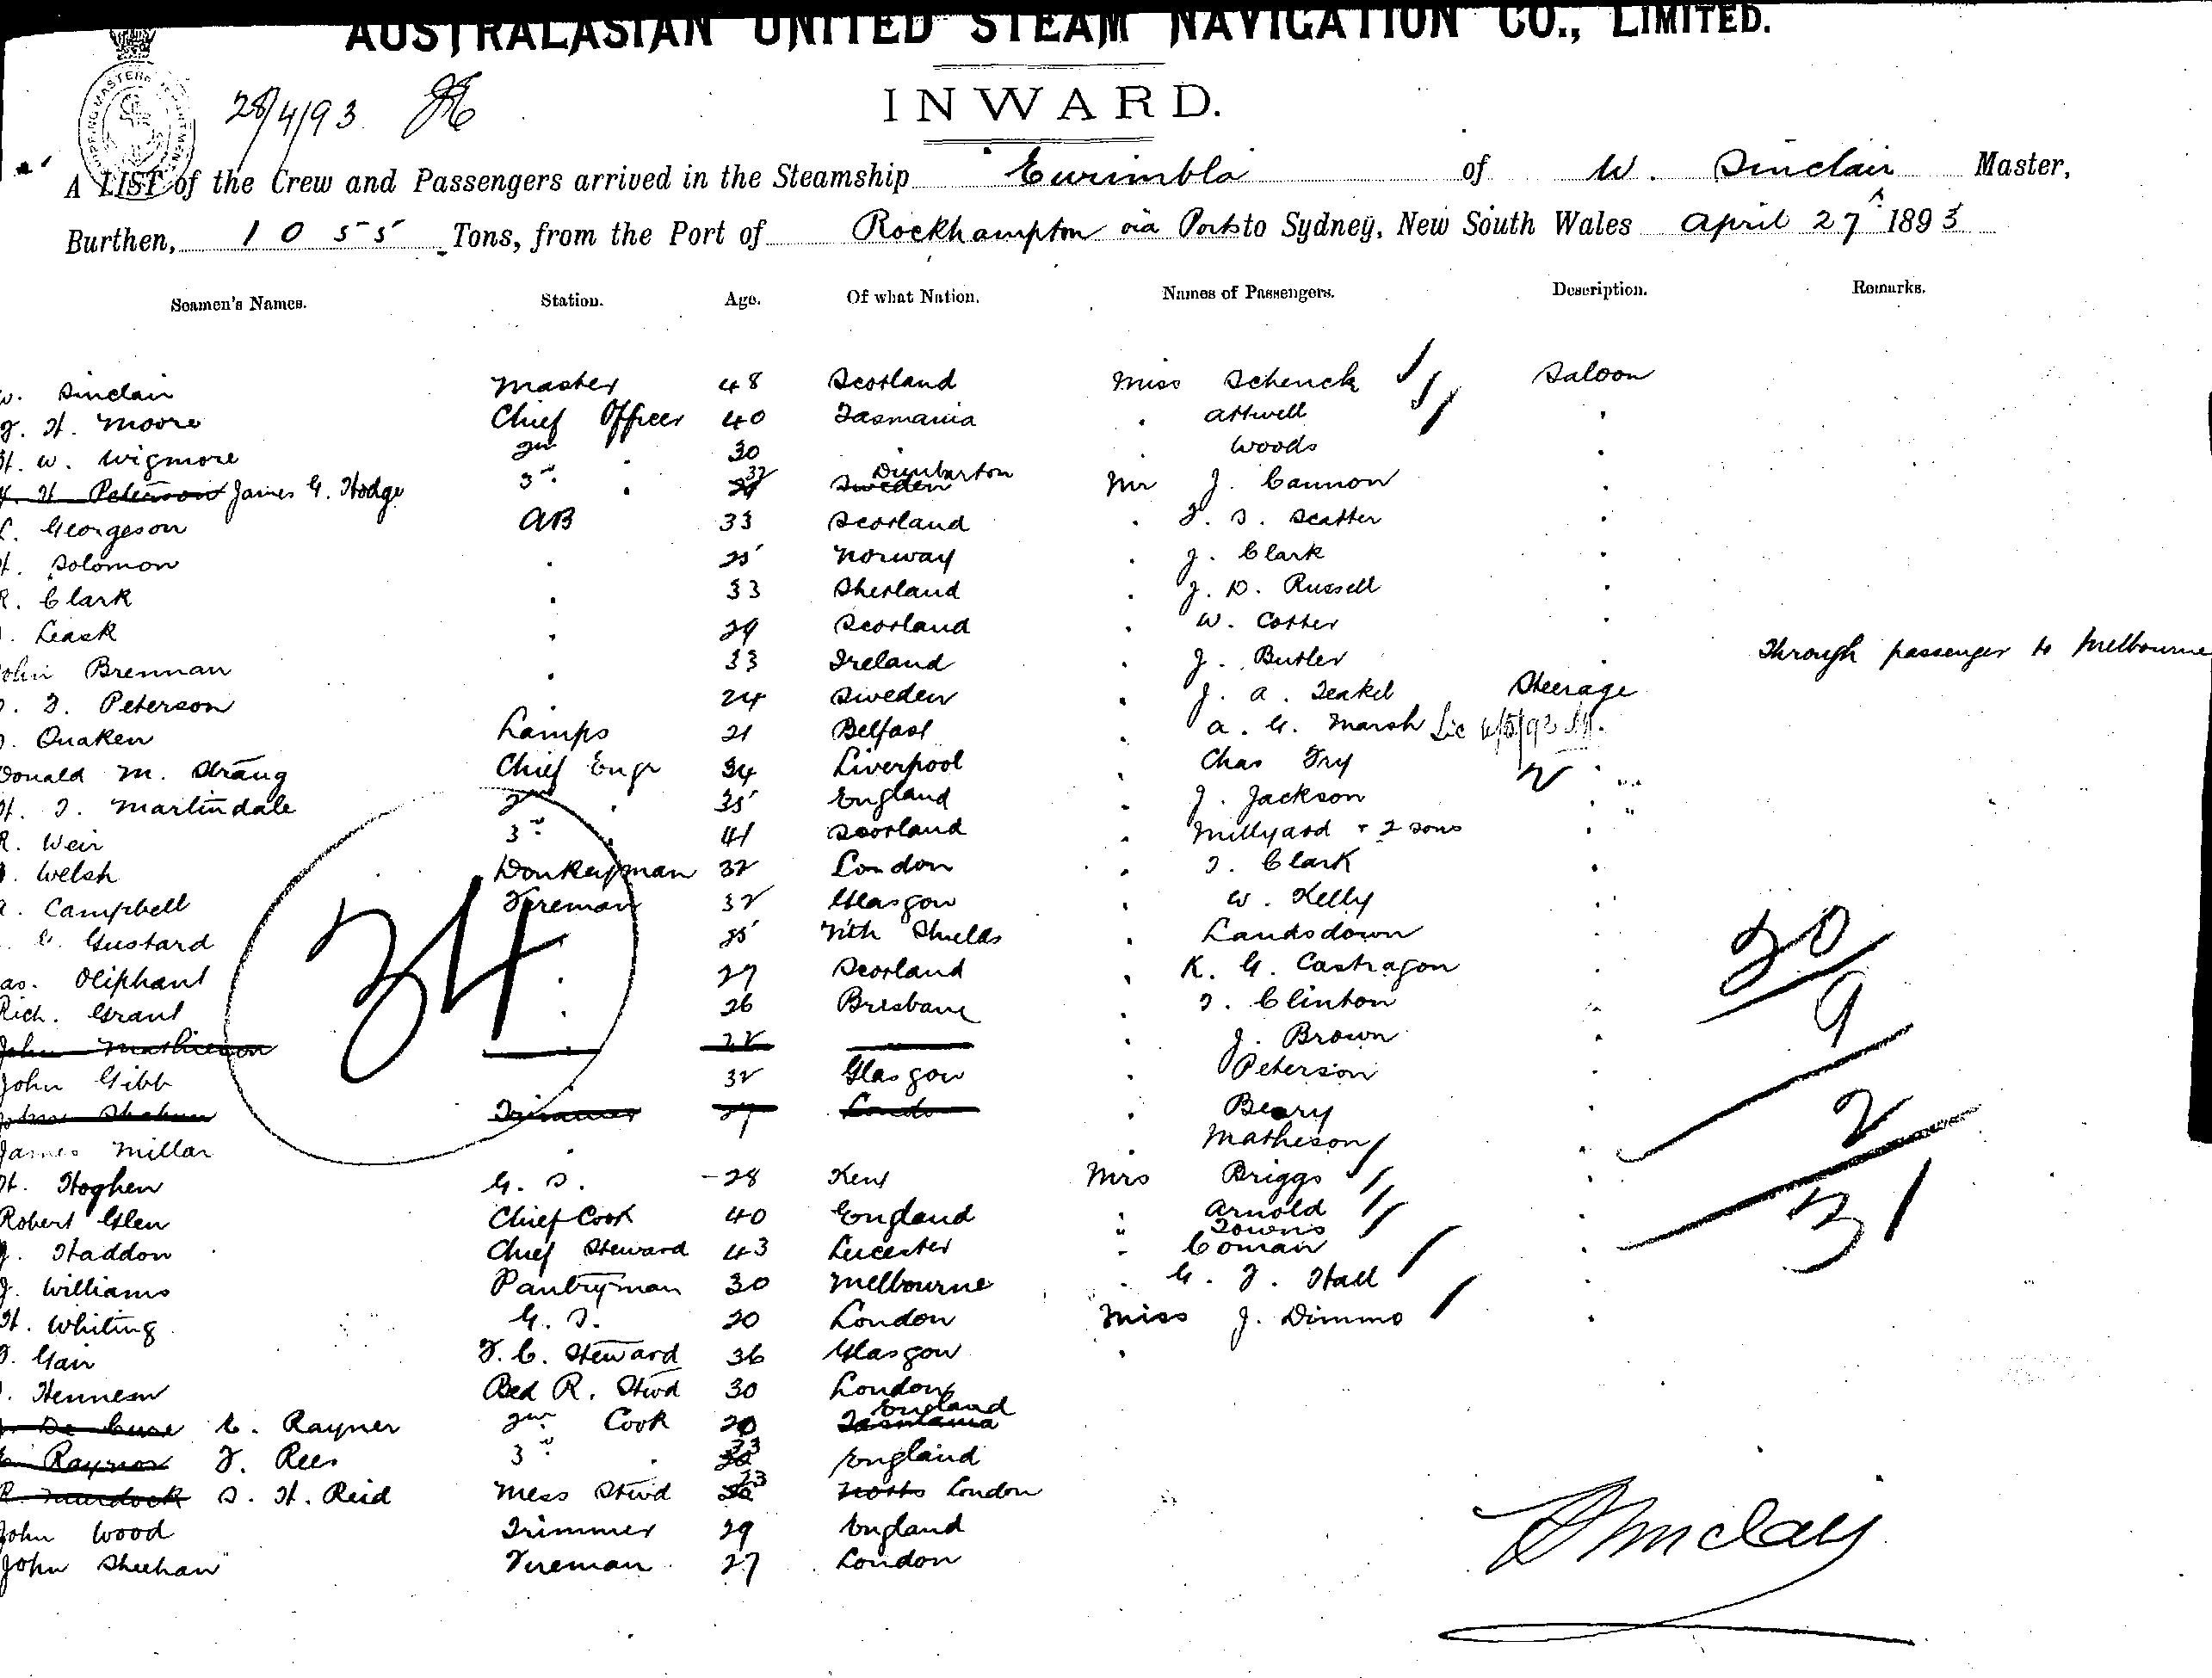 AUSTRALASIAN UNITED STEAM NAVIGATION CO., LIMITED.
28/4/93
INWARD.
A LIST of the Crew and Passengers arrived in the Steamship Eurimbla of W. Sinclair Master,
Burthen, 1055 Tons, from the Port of Rockhampton via Ports to Sydney, New South Wales April 27th 1893
Seamen's Names. Station. Age. Of what Nation. Names of Passengers. Description. Remarks.
W. Sinclair Master 48 Scotland Miss Schenck Saloon
J. H. Moore Chief Officer 40 Tasmania . Attwell .
H. W. Wigmore 2nd . 30 . . Woods .
H. Peterson James G. Hodge 3rd . 32 Sweden Dumbarton Mr J. Cannon .
Georgeson AB 33 Scotland . J. S. Scatter .
H. Solomon . 25 Norway . J. Clark .
R. Clark . 33 Shetland . J. D. Russell .
. Leask . 29 Scotland . W. Cotter .
John Brennan . 33 Ireland . J. Butler . Through passenger to Melbourne
. F. Peterson . 24 Sweden . J. A. Teakel Steerage
. Quaken Lamps 21 Belfast . A. G. Marsh
Donald M. Strang Chief Engr 34 Liverpool . Chas Fry .
H. T. Martindale 2nd . 35 England . J. Jackson .
R. Weir 3rd . 41 Scotland . Millyard + 2 sons .
. Welsh Donkeyman 32 London . T. Clark .
A. Campbell Fireman 32 Glasgow . W. Kelly .
. G. Gustard . 25 Nth Shields . Landsdown .
Jas. Oliphant . 27 Scotland . K. G. Castragon .
Rich. Grant . 26 Brisbane . T. Clinton .
John Mathieson . 22 . J. Brown .
John Gibb . 32 Glasgow . Peterson .
Trimmer 27 London . Beary .
James Millar . . Matheson .
H. Hoghen G. S. 28 Kent Mrs Briggs .
Robert Glen Chief Cook 40 England . Arnold .
" Towns
J. Haddon Chief Steward 43 Leicester . Coman .
J. Williams Pantryman 30 Melbourne . G. J. Hall .
H. Whiting G. S. 20 London Miss J. Dimmo .
J. Gair F. C. Steward 36 Glasgow .
. Hennem Bed R. Stwd 30 London
C. Rayner 2nd Cook 20 Tasmania England
Raynor F. Rees 3rd . 23 England
R. Murdock S. H. Reid Mess Stwd 23 Notts London
John Wood Trimmer 29 England
John Sheehan Fireman 27 London
34
20
9
2
31
Sinclair